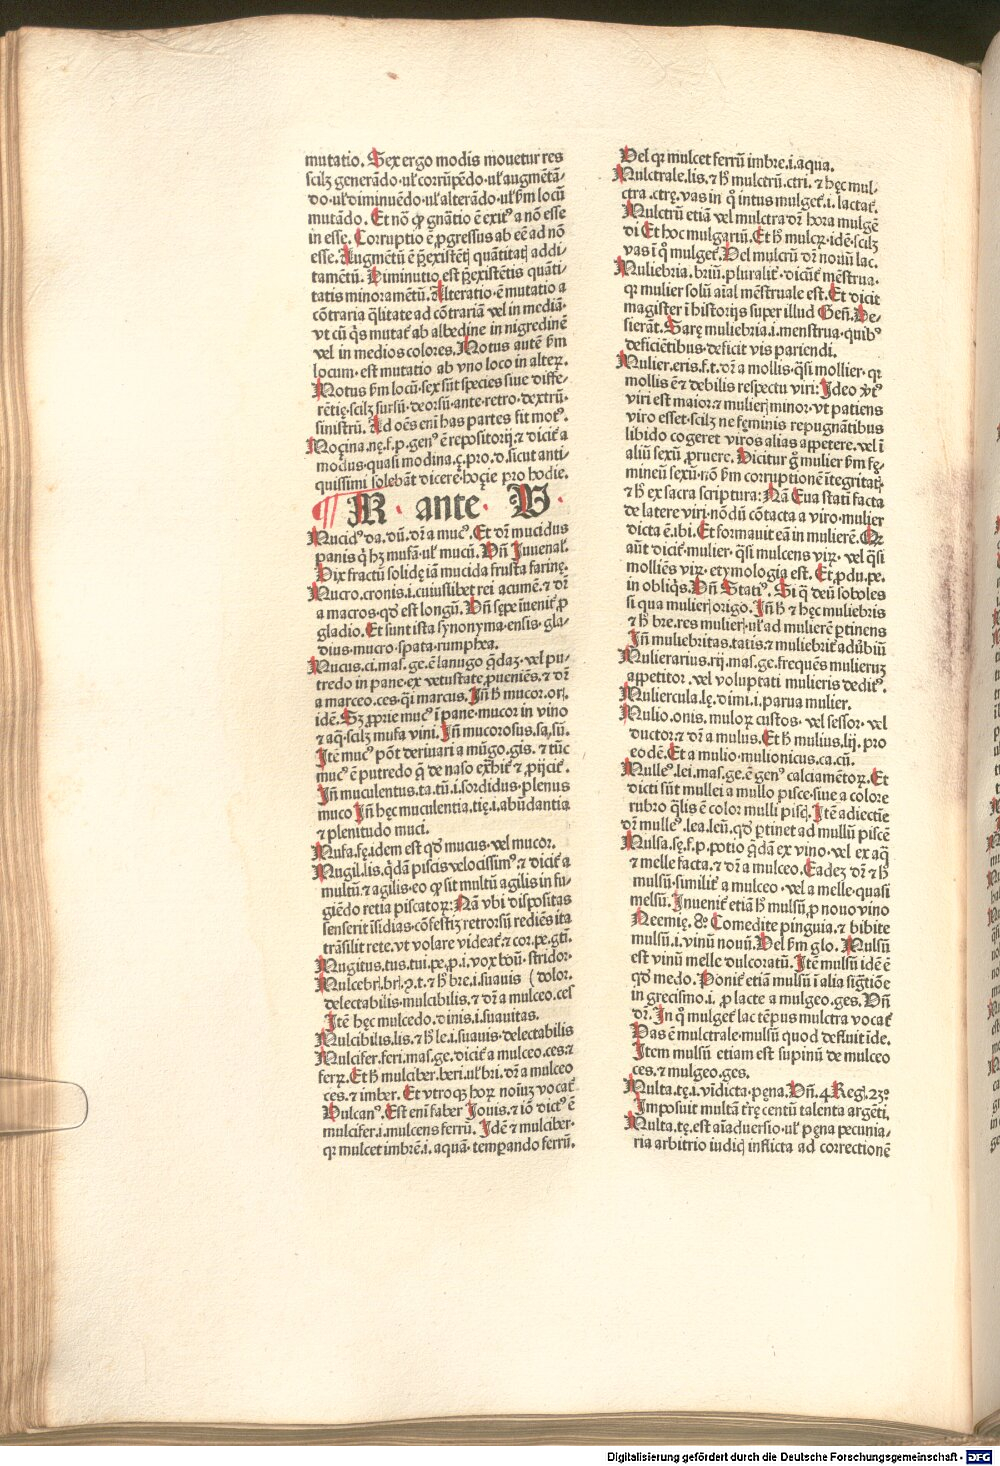 mutatio. Sex ergo modis mouetur res
scilꝫ generãdo·ul᷑ corrũpẽdo·ul᷑ augmẽtã-
do·ul᷑ diminuẽdo·ul᷑ alterãdo·ul᷑ ẜm locũ
mutãdo. Et nõ ꝙ gñatio ẽ exitꝰ a nõ esse
in esse. Corruptio ẽ ꝓgressus ab eẽ ad nõ
esse. Augmẽtũ ẽ p̃existẽtꝭ quãtitatꝭ addi-
tamẽtũ. Diminutio est p̃existẽtis quãti-
tatis minoramẽtũ. Alteratio·ẽ mutatio a
cõtraria q̃litate ad cõtrariã vel in mediã·
vt cũ q̃s mutat᷑ ab albedine in nigredinẽ
vel in medios colores. Motus autẽ ẜm
locum·est mutatio ab vno loco in alteꝝ.
Motus ẜm locũ·sex sũt species siue diffe-
rẽtię·scilꝫ sursũ·deorsũ·ante·retro·dextrũ·
sinistrũ. Ad oẽs eni᷑ has partes fit motꝰ.
Moçina.nę.f.p.genꝰ ẽ repositorij.⁊ dicit᷑ a
modus·quasi modina.ç.pro.d.sicut anti-
quissimi solebãt dicere·hoçie pro hodie.
M· ante· V·
Mucidꝰ.da.dũ.dr̃ a mucꝰ. Et dr̃ mucidus
panis q̇ hꝫ mufã·ul᷑ mucũ. Vñ Juuenal᷑.
Vix fractũ solidę iã mucida frusta farinę.
Mucro.cronis.i.cuiuslibet rei acumẽ.⁊ dr̃
a macros·qđ est longũ. Vñ sępe iuenit᷑ ꝓ
gladio. Et sunt ista synonyma·ensis·gla-
dius·mucro·spata·rumphea.
Mucus.ci.mas.ge.ẽ lanugo q̃daꝫ·vel pu-
tredo in pane·ex vetustate ꝓueniẽs.⁊ dr̃
a marceo.ces·q̃i marcus. Jñ ħ mucor.orꝭ.
idẽ. Sꝫ ꝓprie mucꝰ ĩ pane·mucor in vino
⁊ aq̃·scilꝫ mufa vini. Jñ mucorosus.sa.sũ.
Jtẽ mucꝰ põt deriuari a mũgo.gis.⁊ tũc
mucꝰ ẽ putredo q̃ de naso exhit᷑ ⁊ ꝓijcit᷑.
Jñ muculentus.ta.tũ.i.sordidus·plenus
muco Jñ hęc muculentia.tię.i.abũdantia
⁊ plenitudo muci.
Mufa.fę.idem est qđ mucus·vel mucor.
Mugil.lis.q̃dã piscis velocissimꝰ.⁊ dicit᷑ a
multũ.⁊ agilis·eo ꝙ sit multũ agilis in fu-
giẽdo retia piscatoꝝ: Nã vbi dispositas
senserit ĩsidias·cõfestiꝫ retrorsũ rediẽs ita
trãsilit rete.vt volare videat᷑.⁊ cor.pe.gti᷑.
Mugitus.tus.tui.pe.p.i.vox boũ·stridor·
Mulcebrꝭ.brꝭ.ꝯ.t.⁊ ħ bre.i.suauis (dolor.
delectabilis·mulcibilis.⁊ dr̃ a mulceo.ces
Jtẽ hęc mulcedo.dinis.i.suauitas.
Mulcibilis.lis.⁊ ħ le.i.suauis·delectabilis
Mulcifer.feri.mas.ge.dicit᷑ a mulceo.ces.⁊
ferꝝ. Et ħ mulciber.beri.ul᷑ bri.dr̃ a mulceo
ces.⁊ imber. Et vtroqꝫ hoꝝ noĩuꝫ vocat᷑
Vulcanꝰ. Est eni᷑ faber Jouis.⁊ iõ dictꝰ ẽ
mulcifer.i.mulcens ferrũ. Jdẽ ⁊ mulciber·
qꝛ mulcet imbrẽ.i.aquã·temꝑando ferrũ.
Vel qꝛ mulcet ferrũ imbre.i.aqua.
Mulctrale.lis.⁊ ħ mulctrũ.ctri.⁊ hęc mul-
ctra.ctrę.vas in q̊ intus mulget᷑.i.lactat᷑.
Mulctrũ etiã vel mulctra dr̃ hora mulgẽ
di Et hoc mulgariũ. Et ħ mulcꝝ·idẽ·scilꝫ
vas ĩ q̊ mulget᷑. Vel mulcrũ dr̃ nouũ lac.
Muliebria.briũ.pluralit᷑·dicũt᷑ mẽstrua·
qꝛ mulier solũ aĩal mẽstruale est. Et dicit
magister ĩ historijs super illud Geñ. De-
sierãt. Sarę muliebria.i.menstrua·quibꝰ
deficiẽtibus·deficit vis pariendi.
Mulier.eris.f.t.dr̃ a mollis·q̃si mollier·qꝛ
mollis ẽ ⁊ debilis respectu viri: Jdeo ꝟtꝰ
viri est maior.⁊ mulierꝭ minor·vt patiens
viro esset·scilꝫ ne fęminis repugnãtibus
libido cogeret viros alias appetere.vel ĩ
aliũ sexũ ꝓruere. Dicitur g̊ mulier ẜm fę-
mineũ sexũ·nõ ẜm corruptionẽ ĩtegritatꝭ.
⁊ ħ ex sacra scriptura: Nã Eua stati᷑ facta
de latere viri·nõdũ cõtacta a viro·mulier
dicta ẽ.ibi. Et formauit eã in mulierẽ. Qꝛ
aũt dicit᷑ mulier·q̃si mulcens viꝝ·vel q̃si
molliẽs viꝝ·etymologia est. Et ꝓdu.pe.
in obliq̃s. Vñ Statiꝰ. Si q̃ deũ soboles
si qua mulierꝭ origo. Jñ ħ ⁊ hęc muliebris
⁊ ħ bre.res mulierꝭ·ul᷑ ad mulierẽ ꝑtinens
Jñ muliebritas.tatis.⁊ muliebrit᷑ aduerbiũ
Mulierarius.rij.mas.ge.frequẽs mulieruꝫ
appetitor.vel voluptati mulieris deditꝰ.
Muliercula.lę.dimi.i.parua mulier.
Mulio.onis.muloꝝ custos·vel sessor·vel
ductor.⁊ dr̃ a mulus. Et ħ mulius.lij.pro
eodẽ. Et a mulio·mulionicus.ca.cũ.
Mulleꝰ.lei.mas.ge.ẽ genꝰ calciamẽtoꝝ. Et
dicti sũt mullei a mullo pisce·siue a colore
rubro q̃lis ẽ color mulli piscꝭ. Jtẽ adiectiue
dr̃ mulleꝰ.lea.leũ.qđ ꝑtinet ad mullũ piscẽ
Mulsa.sę.f.p.potio q̃dã ex vino·vel ex aq̃
⁊ melle facta.⁊ dr̃ a mulceo. Eadeꝫ dr̃ ⁊ ħ
mulsũ·similit᷑ a mulceo·vel a melle·quasi
melsũ. Jnuenit᷑ etiã ħ mulsũ ꝓ nouo vino
Neemię.8º Comedite pinguia.⁊ bibite
mulsũ.i.vinũ nouũ. Vel ẜm glo. Mulsũ
est vinũ melle dulcoratũ. Jtẽ mulsũ idẽ ẽ
qđ medo. Ponit᷑ etiã mulsũ ĩ alia sigt̃iõe
in grecismo.i.ꝓ lacte a mulgeo.ges. Vñ
dr̃. Jn q̊ mulget᷑ lac tẽpus mulctra vocat᷑
Vas ẽ mulctrale·mulsũ quod defluit ĩde.
Jtem mulsũ etiam est supinũ de mulceo
ces.⁊ mulgeo.ges.
Multa.tę.i.vĩdicta·pęna. Vñ.4.Regꝭ.23º
Jmposuit multã tr̃ę centũ talenta argẽti.
Multa.tę.est aĩaduersio·ul᷑ pęna pecunia-
ria arbitrio iudicꝭ inflicta ad correctionẽ
Digitalisierung gefördert durch die Deutsche Forschungsgemeinschaft - DFG